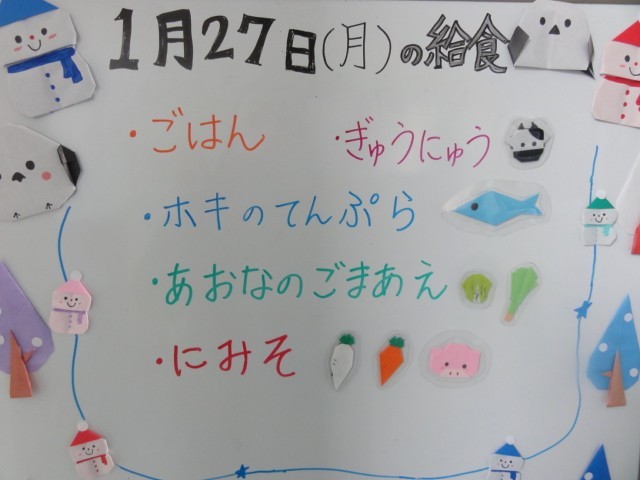 1月27日(月)の給食
・ごはん ・ぎゅうにゅう
・ホキのてんぷら
・あおなのごまあえ
・にみそ